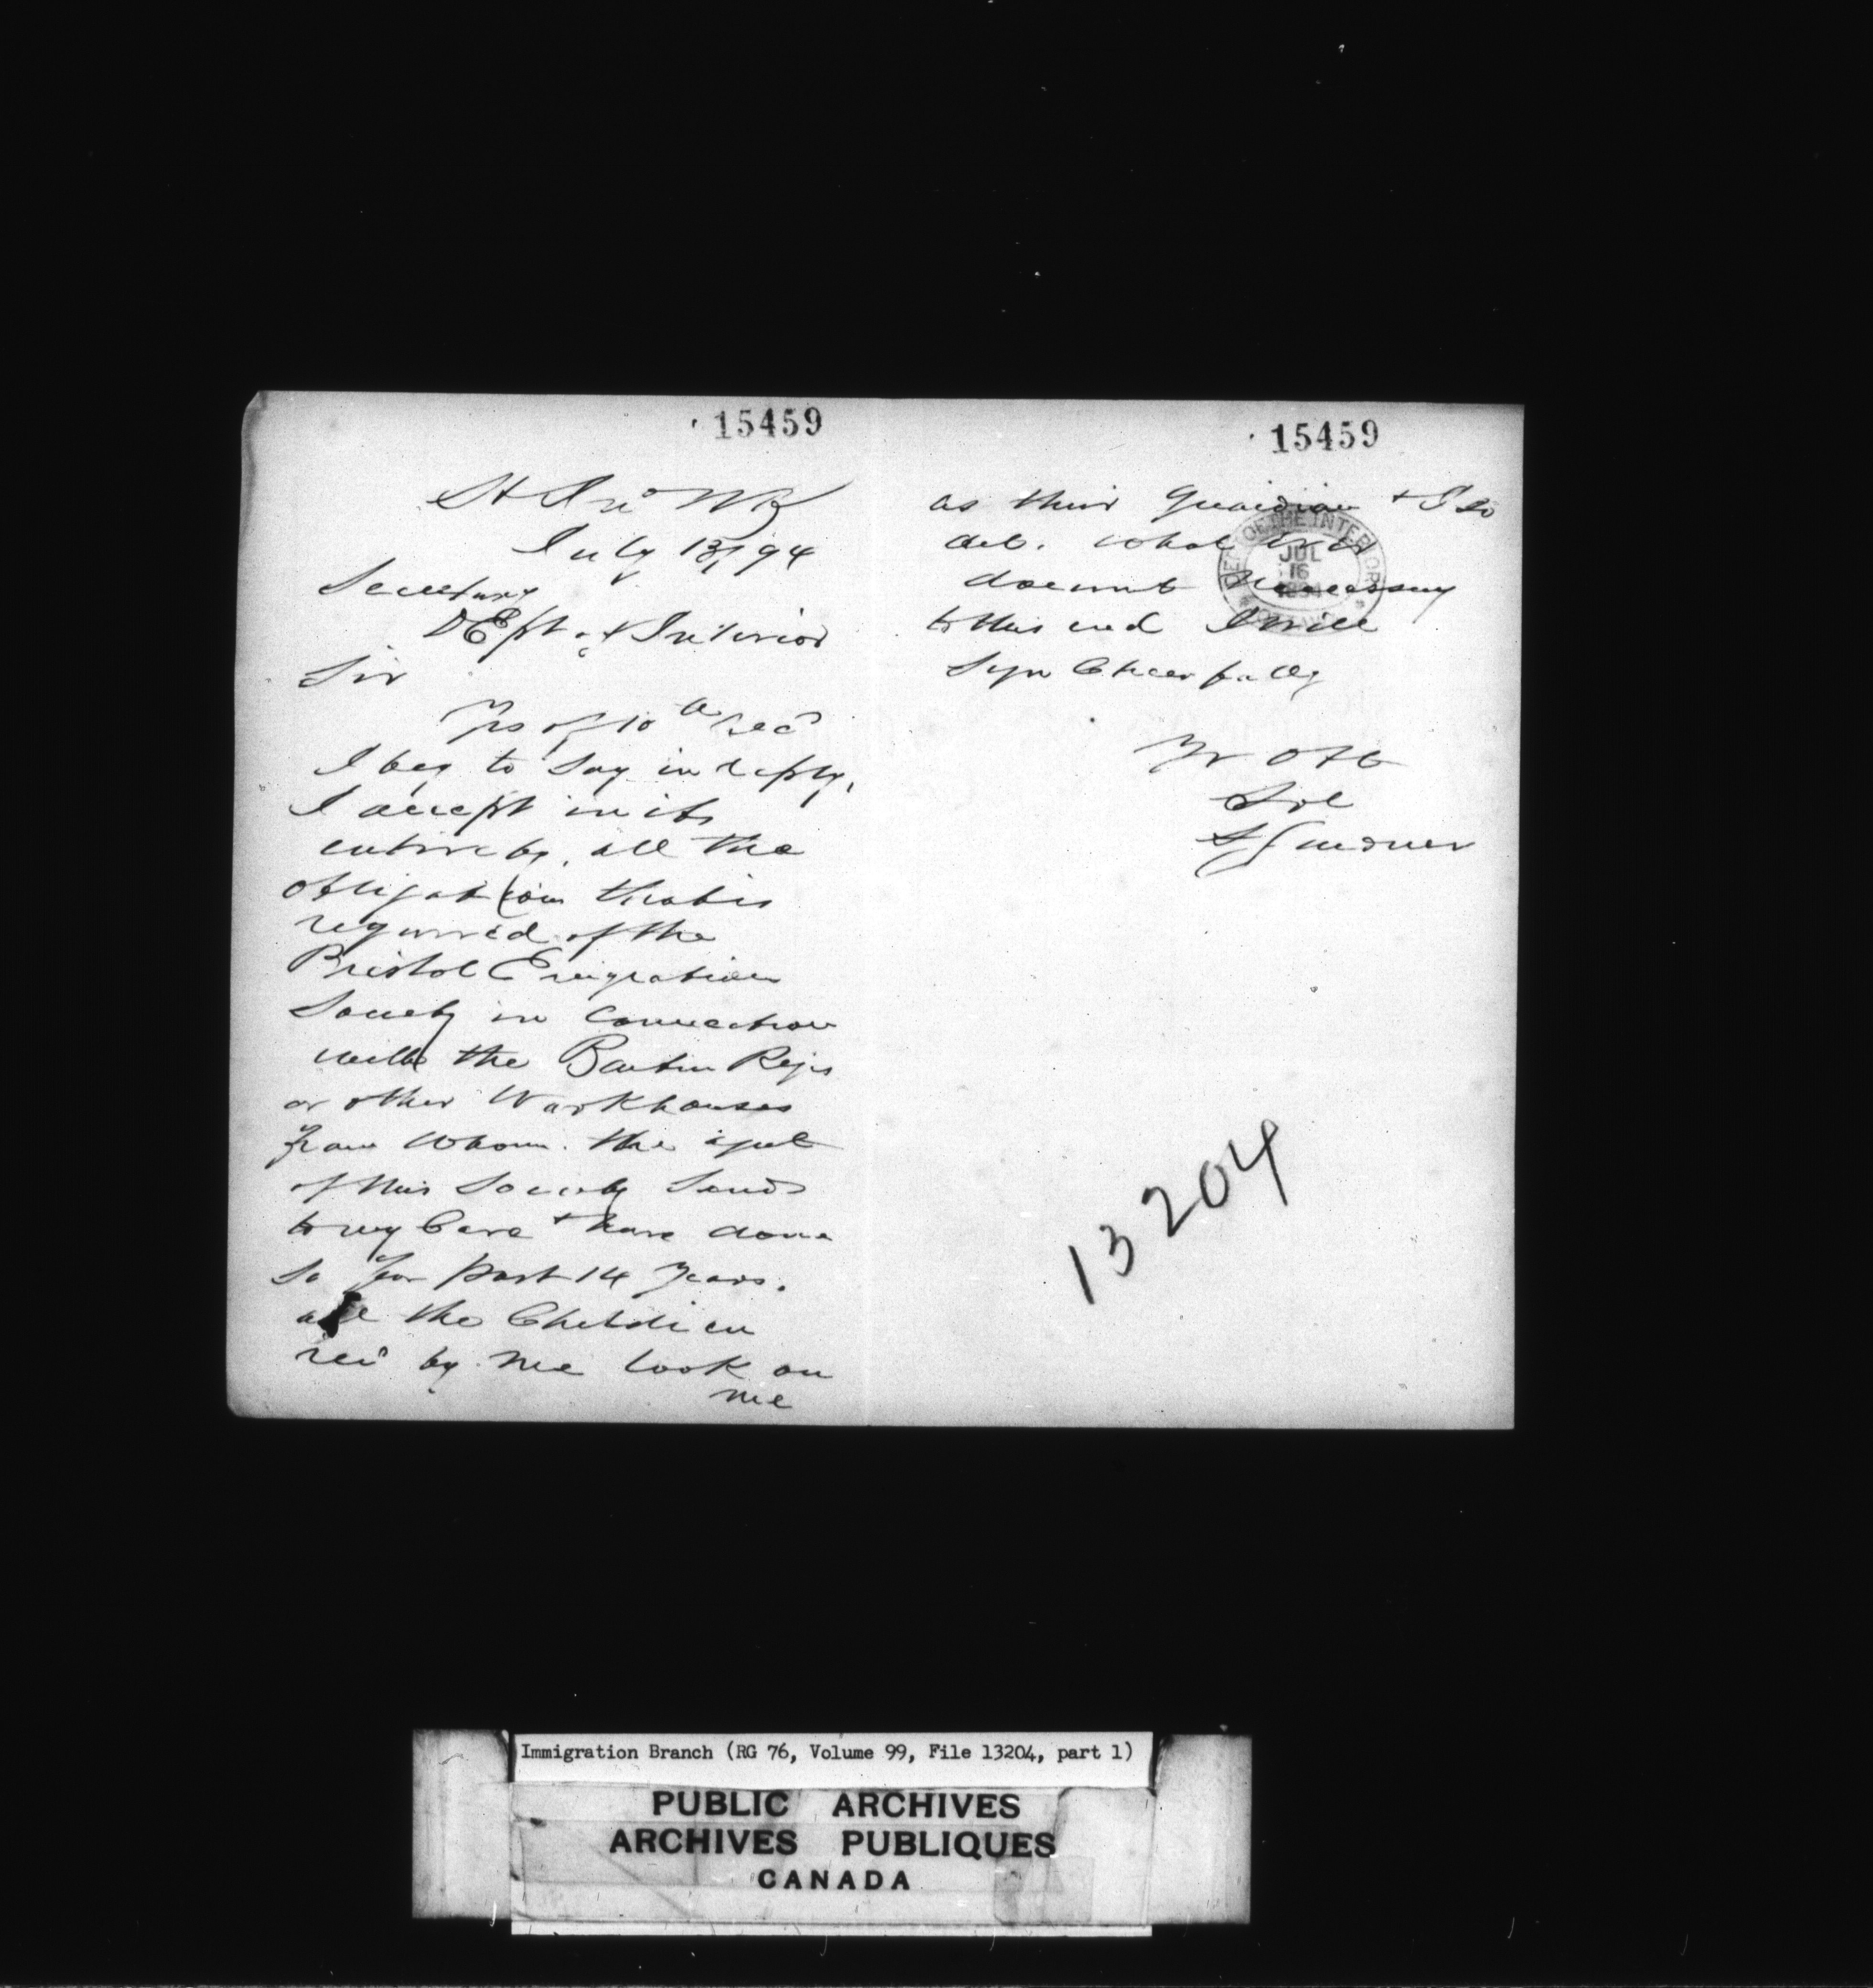 15459
St Jno NB
July 13/94
Secretary
DEpt of Interior
Sir
Yrs of 10th recd
I beg to say in reply,
I accept in its
entirety, all the
obligation that is
required of the
Bristol Emigration
Society in Connection
with the Barton Regis
or other Workhouses
from whom. the agent
of this Society Sends
to my Care + have done
so for past 14 years.
all the Children
recd by me look on
me
15459
as their Guardian + I so
act. what ever
document necessary
to this end I will
sign Cheerfully
Yr Obt
Svt
S Gardner
DEPT. OF THE INTERIOR
JUL
16
1894
13204
Immigration Branch (RG 76, Volume 99, File 13204, part 1)
PUBLIC ARCHIVES
ARCHIVES PUBLIQUES
CANADA